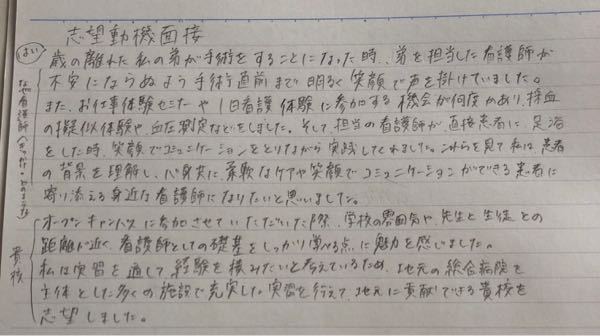 志望動機面接
はい
歳の離れた私の弟が手術をすることになった時、弟を担当した看護師が
不安にならぬよう手術直前まで明るく笑顔で声を掛けていました。
また、お仕事体験セミナーや1日看護体験に参加する機会が何度かあり、採血
の擬似体験や血圧測定などをしました。そして、担当の看護師が、直接患者に、足浴
をした時、笑顔でコミュニケーションをとりながら実践してくれました。これらを見て私は、患者
の背景を理解し、心身共に柔軟なケアや笑顔でコミュニケーションができる患者に
寄り添える身近な看護師になりたいと思いました。
なぜ看護師(きっかけ・どのような)
オープンキャンパスに参加させていただいた際、学校の雰囲気や、先生と生徒との
距離が近く、看護師としての礎基をしっかり学べる点に魅力を感じました。
私は実習を通して経験を積みたいと考えているため、地元の総合病院を
主体とした多くの施設で充実した実習を行えて、地元に貢献できる貴校を
志望しました。
貴校